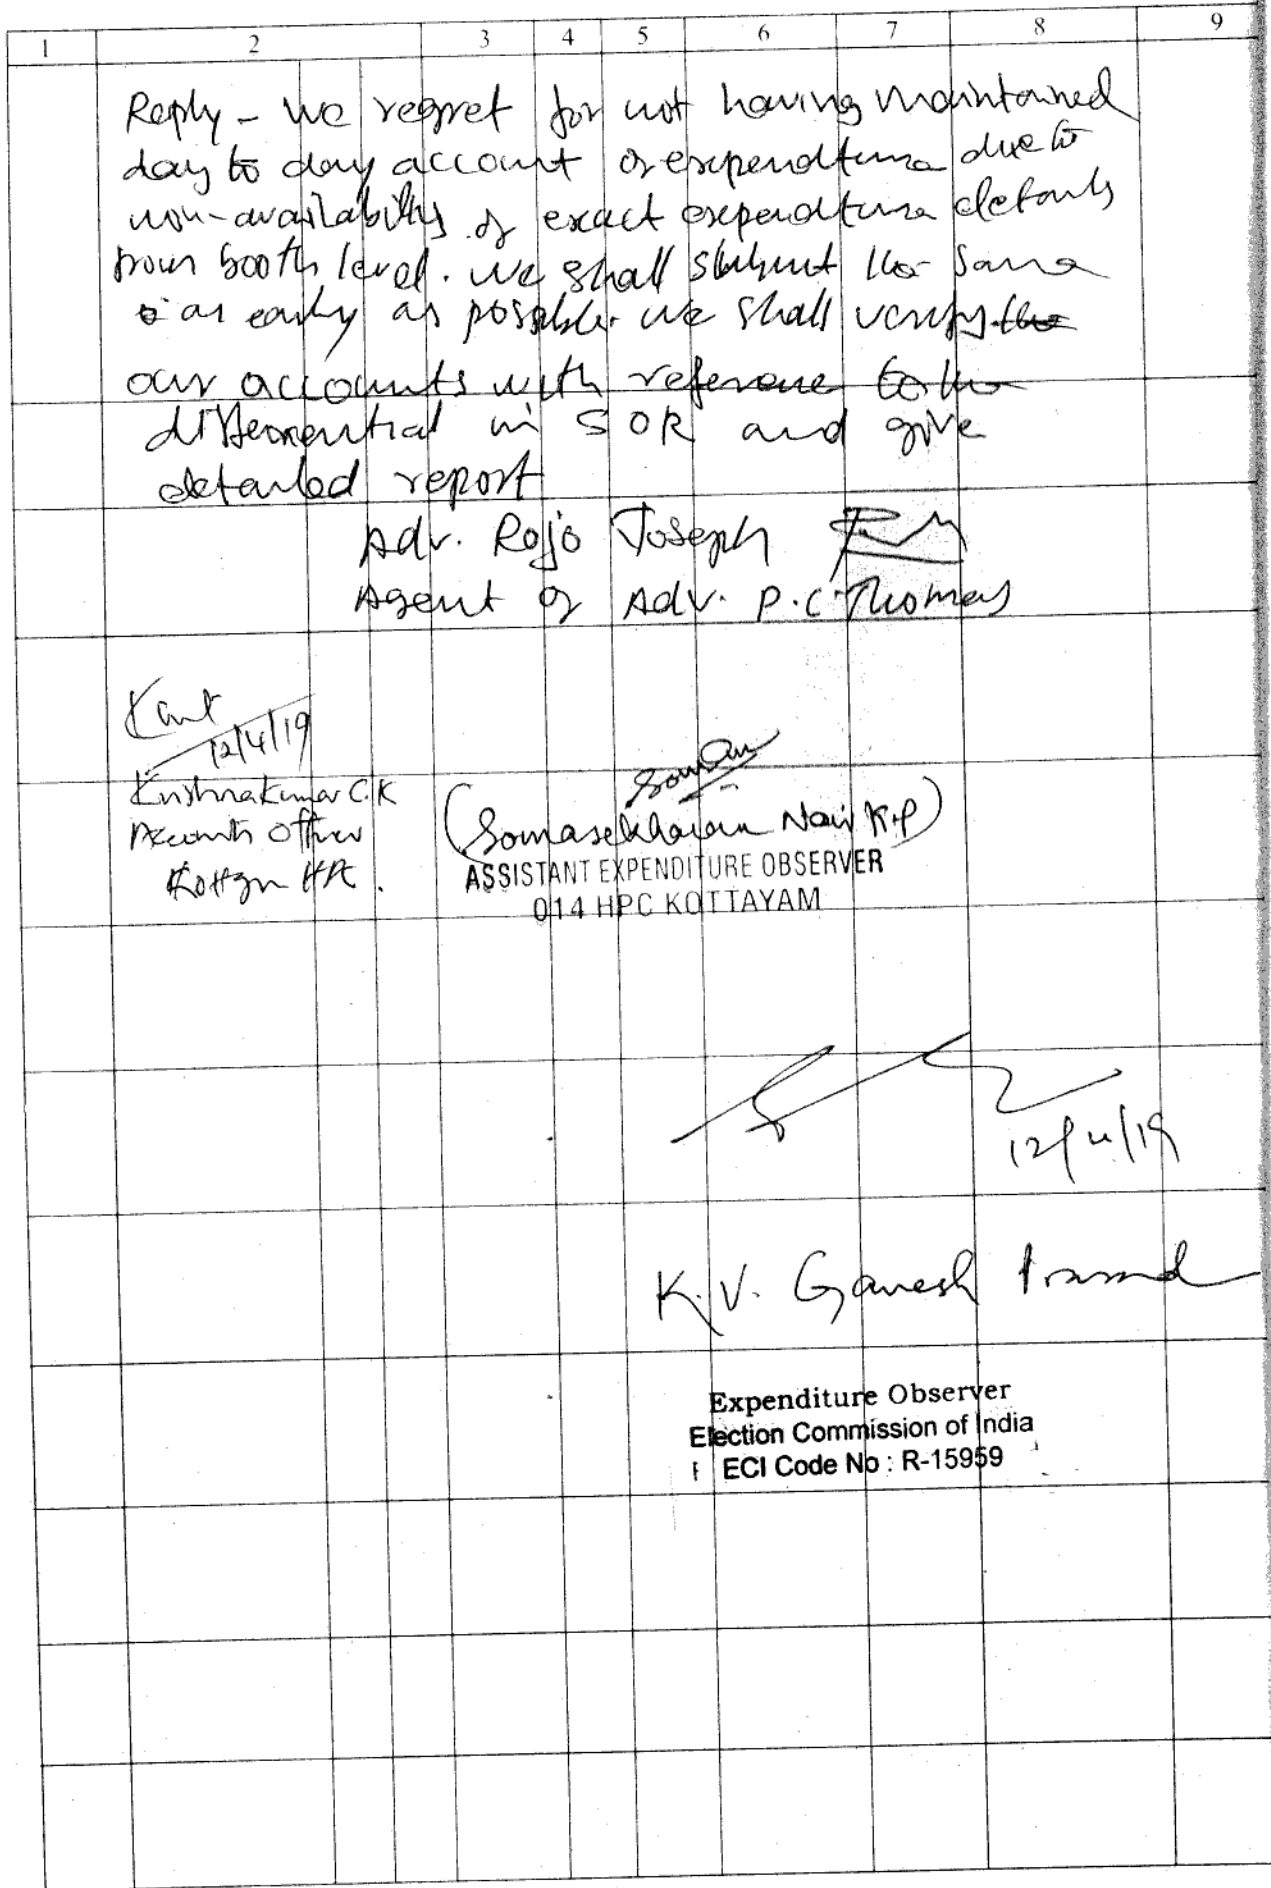 1 2 3 4 5 6 7 8 9
Reply - We regret for not having maintained
day to day account of expenditure due to
non-availability of exact expenditure details
from booth level. we shall submit the same
as early as possible. we shall verify the
our accounts with reference to the
differential in SOR and give
detailed report
Adv. Rojo Joseph
Agent of Adv. P.C. Thomas
12/4/19
Krishnakumar C.K
Accounts Officer
Soman
(Somasekharan Nair K.P)
ASSISTANT EXPENDITURE OBSERVER
014 HPC KOTTAYAM
12/4/19
K.V. Ganesh Prasad
Expenditure Observer
Election Commission of India
ECI Code No : R-15959